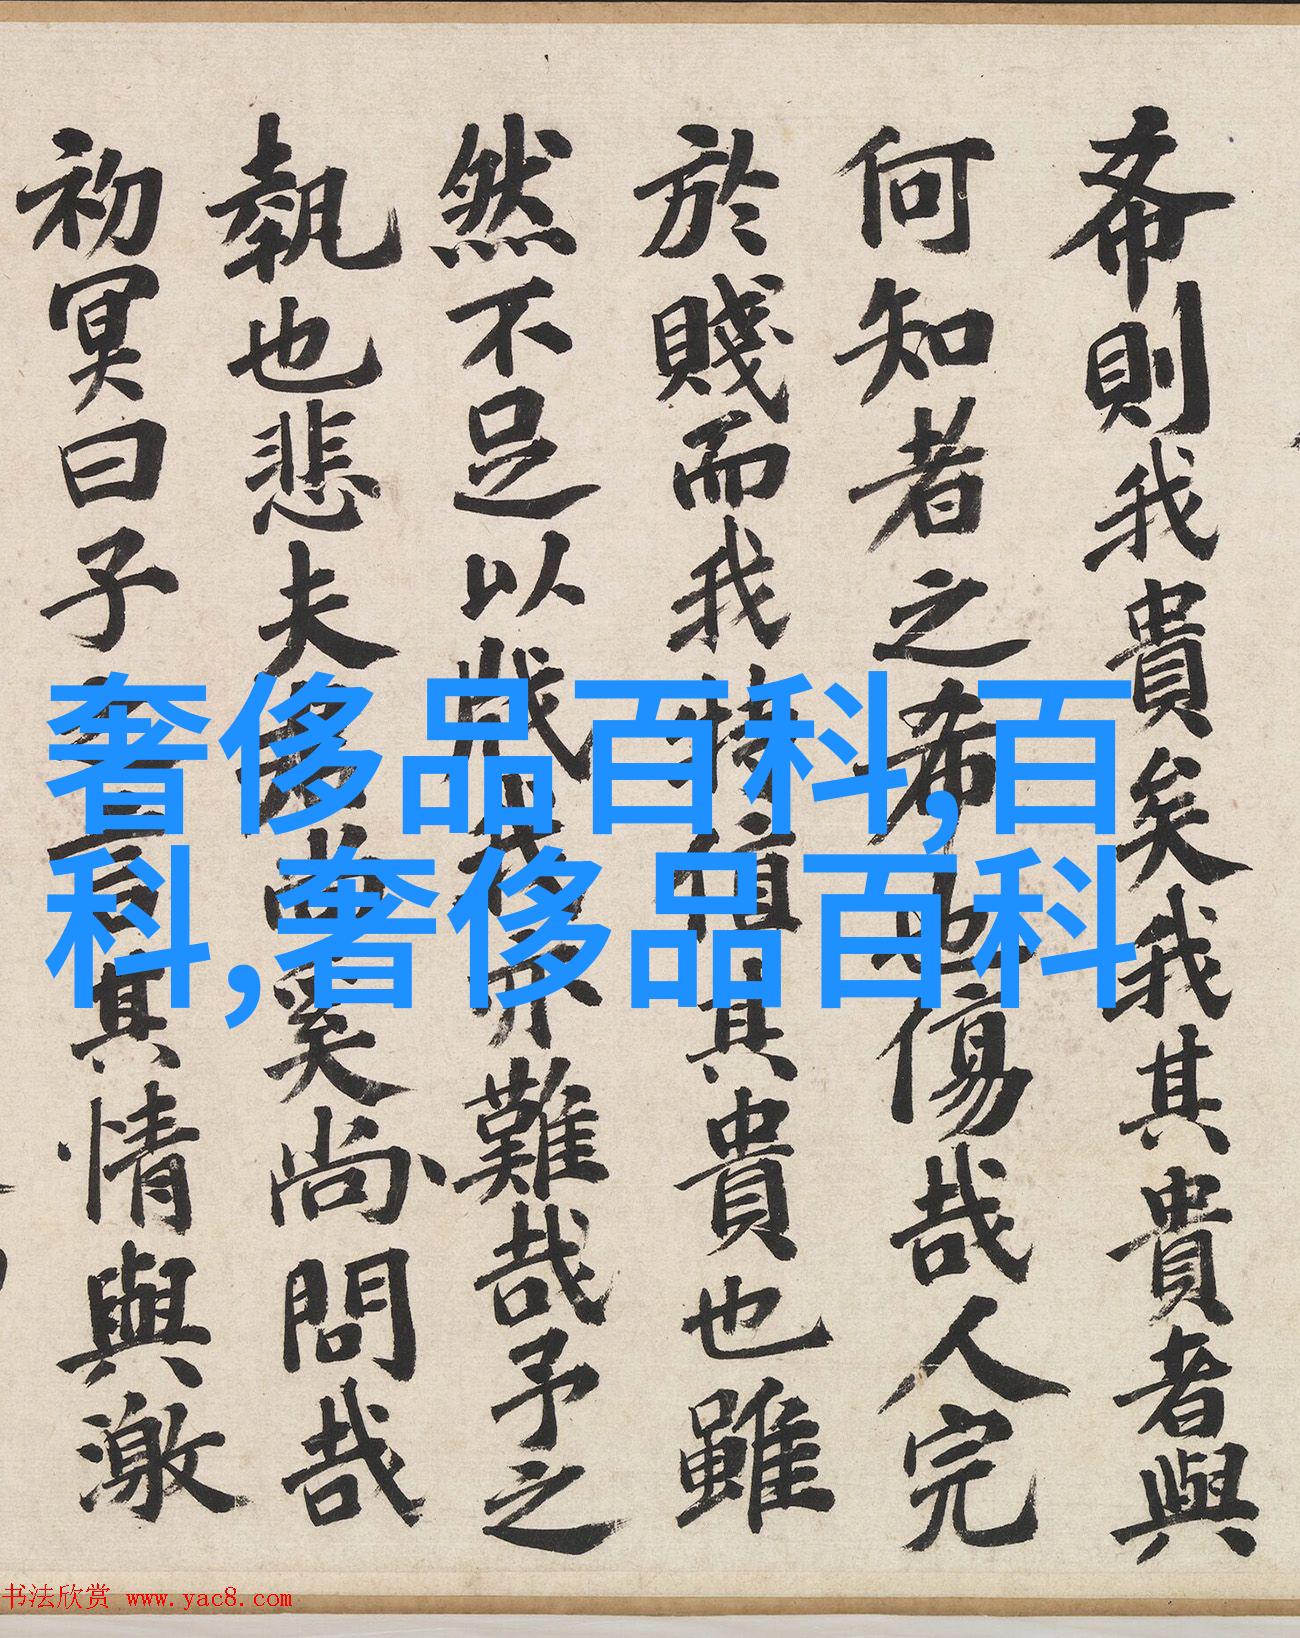 希則我貴矣我其貴者與
何知者之希也傷哉人完
於賤而我特值其貴也雖
然不足以戕我難哉予之
執也悲夫尚奚尚問哉
初冥曰子言其情與激
奢侈品百科,百
科,奢侈品百科
书法欣赏 www.yac8.com